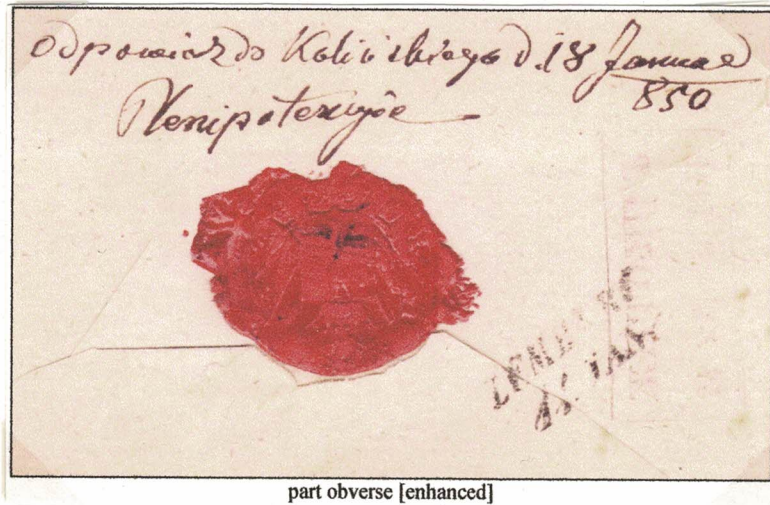 Odpowiedz do Kolińskiego d. 18 Januae
850
Plenipotencyje
LEMBERG
11. IAN.
part obverse [enhanced]